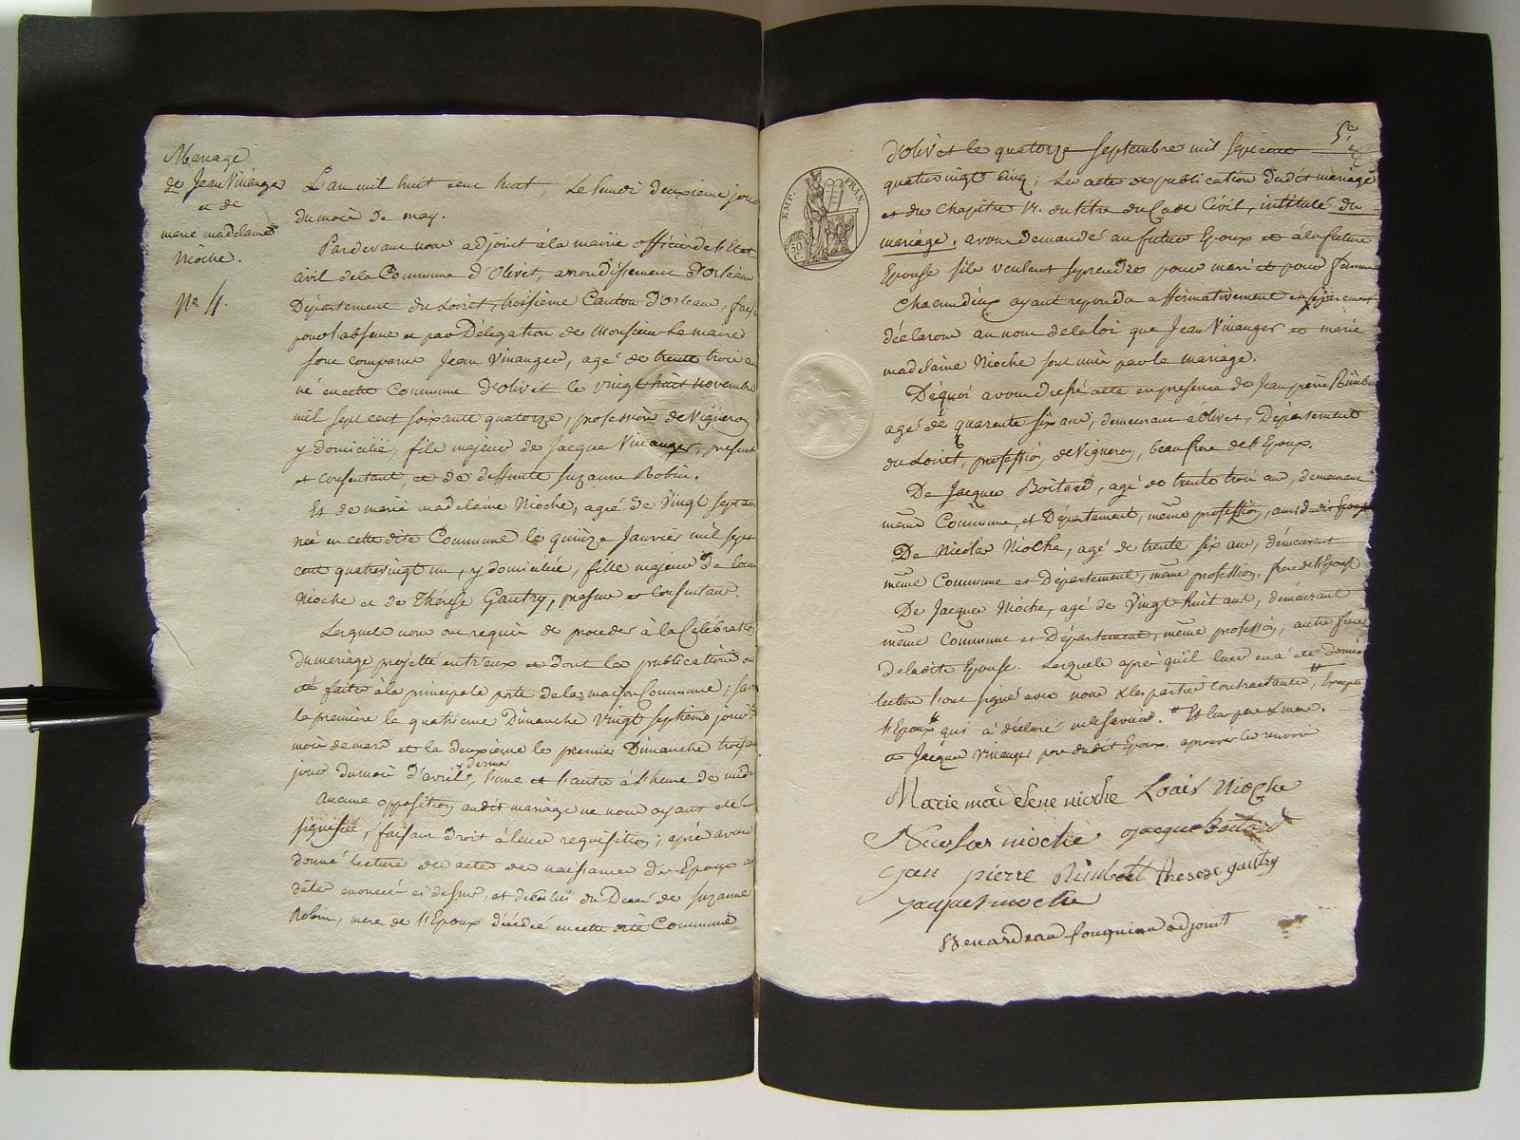 Mariage
de Jean Vinanger
et de
marie madelaine
Nioche.
No 4.
L'an mil huit cent huit, Le lundi deuxieme jour
du mois de may.
Pardevant nous adjoint à la mairie officier de l'Etat
civil de la Commune d'Olivet, arrondissement d'Orléans
Département du Loiret, troisième Canton d'Orleans,
pour l'absence et par Délégation de Monsieur Le maire
sont comparus Jean Vinanger, agé de trente trois ans
né en cette Commune d'Olivet le vingt huit novembre
mil sept cent soixante quatorze, profession de Vigneron
y domicilié, fils majeur de Jacque Vinanger, présent
et consentant et de deffunte Suzanne Robin.
Et de marie madelaine Nioche, agée de Vingt sept ans
née en cette dite Commune le quinze Janvier mil sept
cent quatrevingt un, y domiciliée, fille majeure de Louis
Nioche et de Thérese Gautry, présens et consentans.
Lesquels nous ont requis de proceder à la Célébration
du mariage projetté entr'eux et dont les publications ont
été faites à la principale porte de la maison Commune,
la première le quatrieme Dimanche vingt septieme jour du
mois de mars et la deuxième le premier Dimanche troisieme
jour du mois d'avril dernier, l'une et l'autre à l'heure de midi
Aucune opposition audit mariage ne nous ayant été
signifiée, faisant droit à leur requisition; après avoir
donné lecture des actes de naissances des Epoux en
date enoncée ci dessus, et de celui du Decès de Suzanne
Robin, mere de l'Epoux décédée en cette dite Commune
5
d'Olivet le quatorze septembre mil sept cent
quatrevingt cinq; Les actes de publication dudit mariage
et du chapitre VI. du titre du Code Civil, intitulé du
mariage, avons demandé au futur Epoux et à la future
Epouse s'ils veulent se prendre pour mari et pour femme
chacun d'eux ayant repondu affirmativement et séparement
déclarons au nom de la loi que Jean Vinanger et marie
madelaine Nioche sont unis par le mariage.
De quoi avons dressé acte en presence de Jean pierre Rimbert
agé de quarente six ans, demeurant à Olivet, Département
du Loiret, profession de Vigneron, beau frere de l'Epoux.
De Jacque Boitard, agé de trente trois ans, demeurant
même Commune, et Département, même profession,
De Nicolas Nioche, agé de trente six ans, demeurant
même Commune et Département, même profession, frere de l'Epouse
De Jacque Nioche, agé de Vingt huit ans, demeurant
même Commune et Département, même profession, autre frere
de la dite Epouse. Lesquels après qu'il leur en a été donné
lecture l'ont signé avec nous & les parties contractantes, Excepté
l'Epoux qui à déclaré ne le savoir. Et leur pere & mere.
et Jacque Vinanger pere dudit Epoux. aprouvé les renvois
Marie madelene nioche Louis Nioche
Nicolas nioche Jacque Boitard
Jean pierre Rimbert therese gautry
Jacques nioche
adjoint
EMP. FRAN.
50
C.